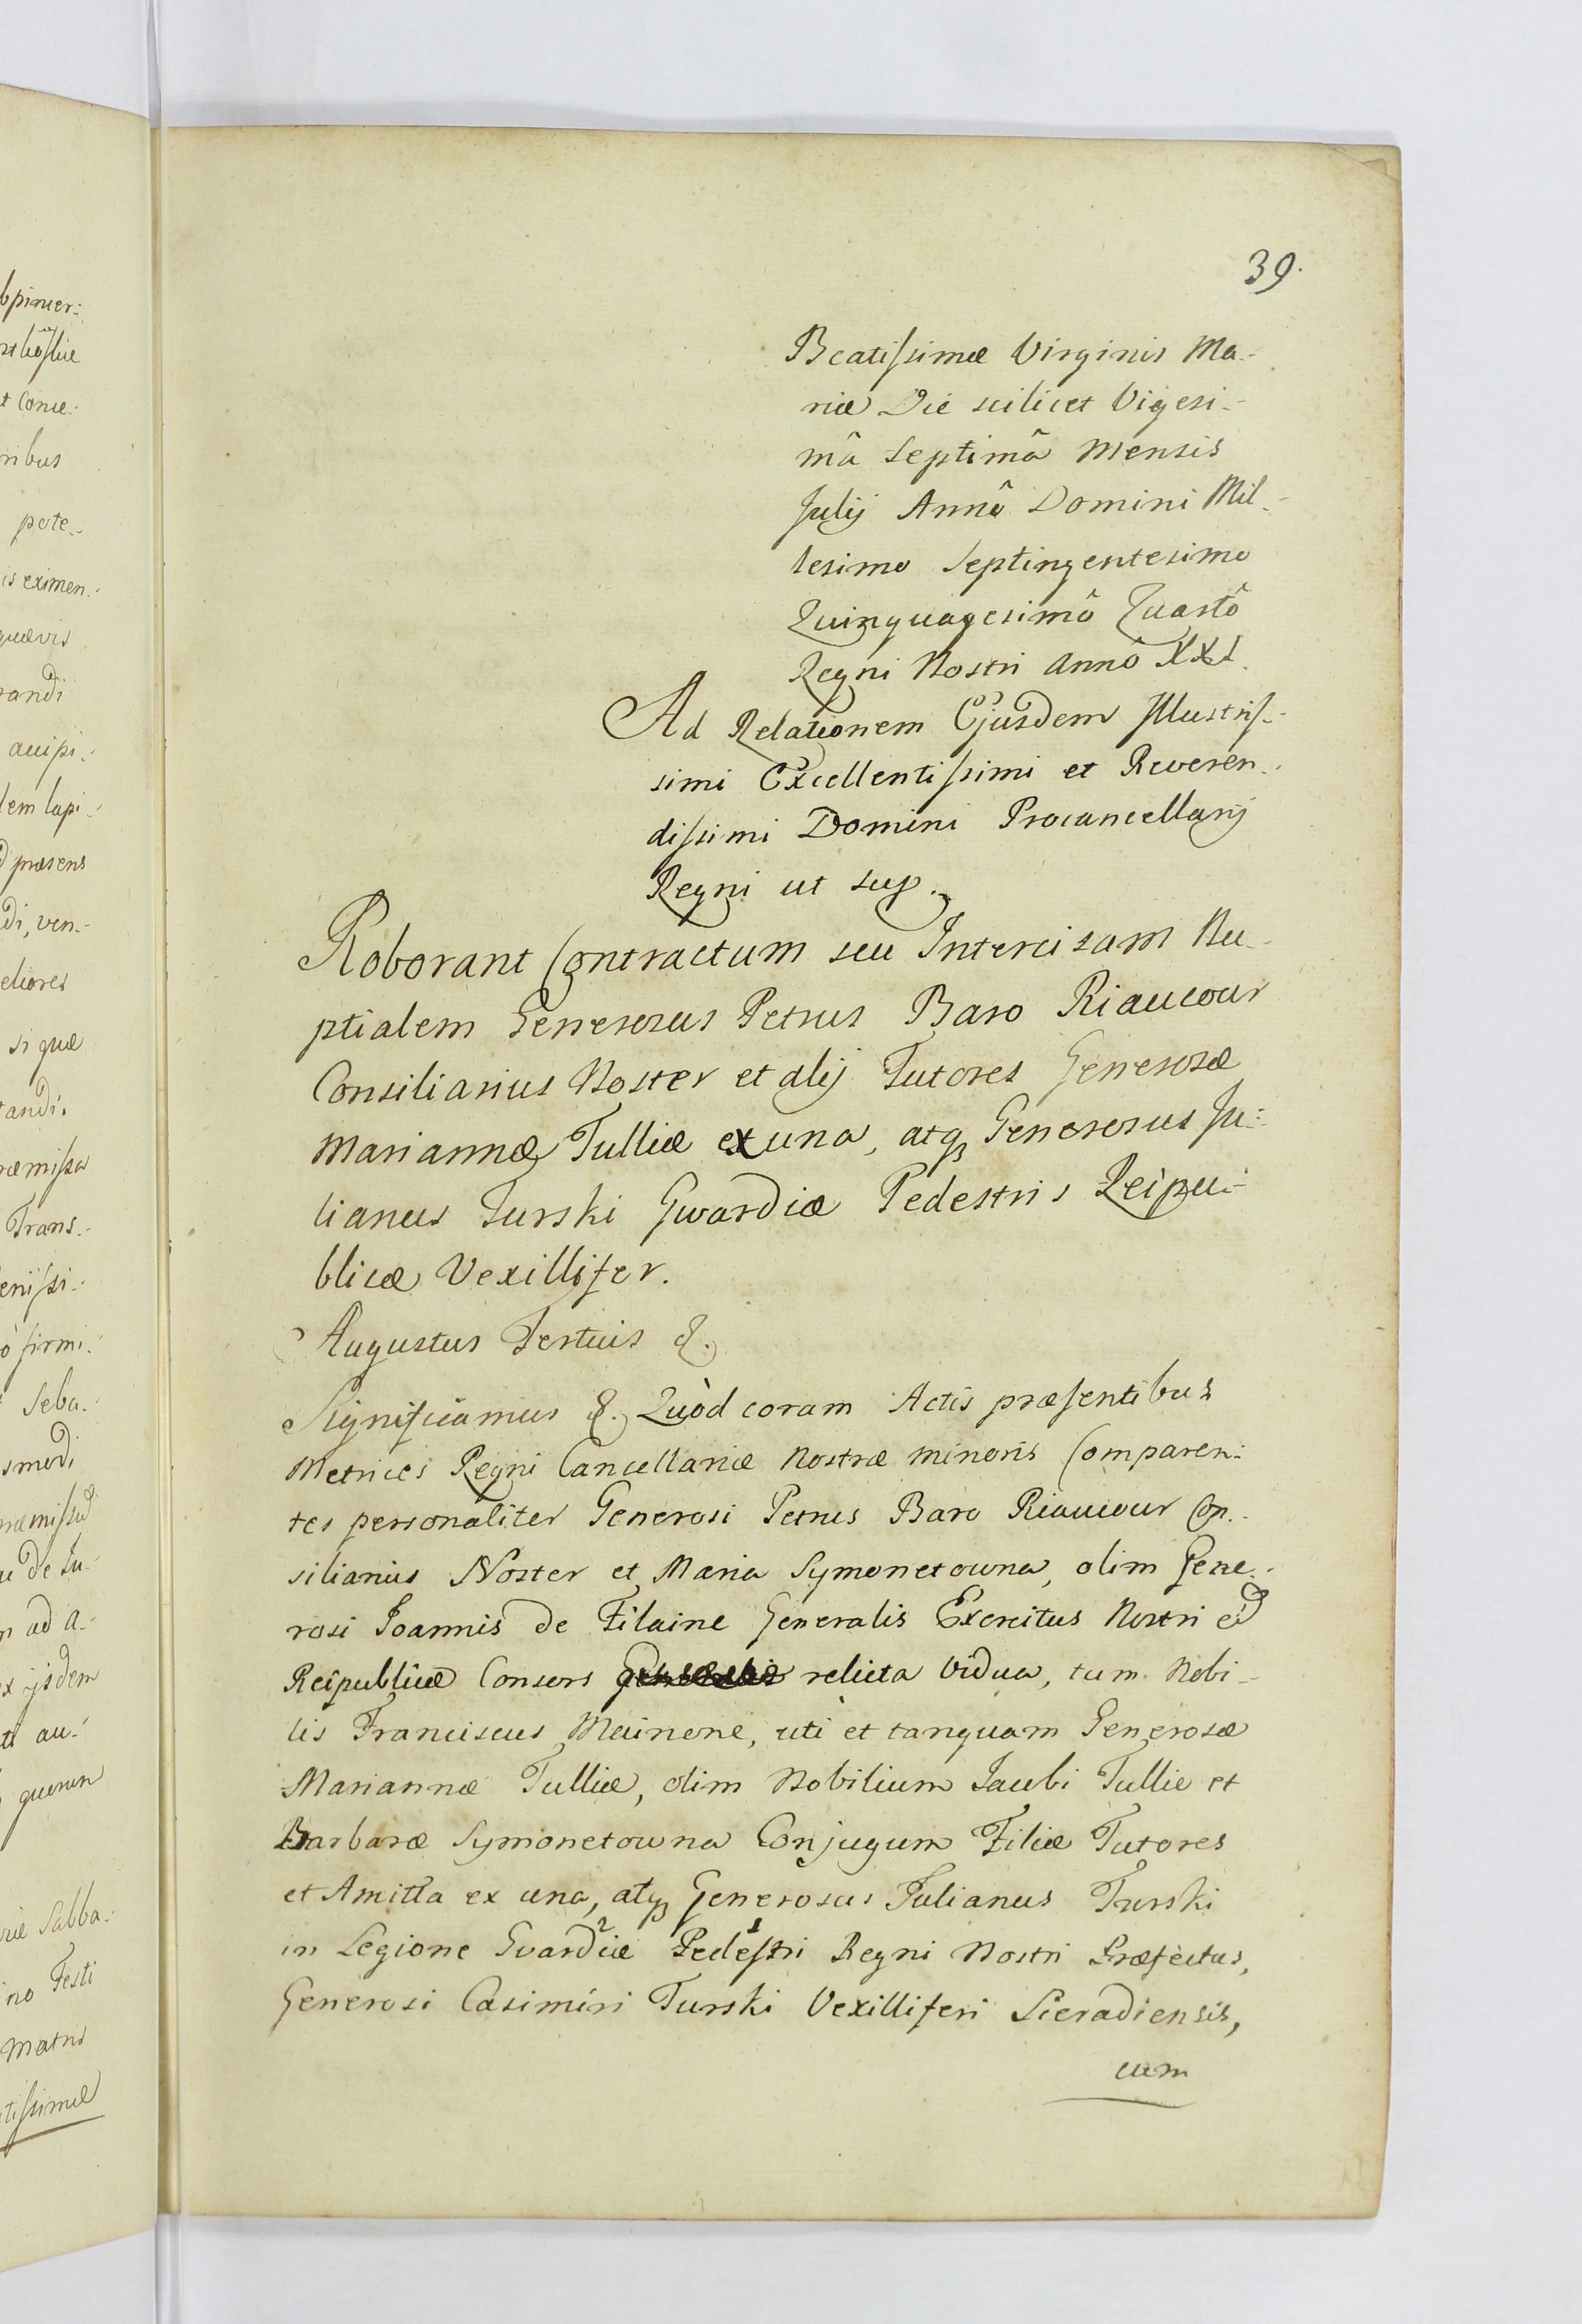 39.
Beatissimæ Virginis Ma-
riæ Die scilicet Vigesi-
mâ Septimâ Mensis
Julij Annô Domini Mil-
lesimo Septingentesimo
Quinquagesimô Quartô
Regni Nostri Annô XXI.
Ad Relationem Ejusdem Illustris-
simi Excellentissimi et Reveren-
dissimi Domini Procancellarij
Regni ut sup.
Roborant Contractum seu Intercisam Nu-
ptialem Generosus Petrus Baro Riaucour
Consiliarius Noster et alij Tutores Generosæ
Mariannæ Tulliæ ex una, atq3 Generosus Ju-
lianus Turski Gwardiæ Pedestris Reipu-
blicæ Vexillifer.
Augustus Tertius &.
Significamus &. Quòd coram Actis præsentibus
Metrices Regni Cancellariæ Nostræ Minoris Comparen-
tes personaliter Generosi Petrus Baro Riaucour Con-
siliarius Noster et Maria Symonetowna, olim Gene-
rosi Joannis de Filaine Generalis Exercitus Nostri et
Reipublicæ Consors relicta Vidua, tum Nobi-
lis Franciscus Mainone, uti et tanquam Generosæ
Mariannæ Tulliæ, olim Nobilium Jacobi Tullie et
Barbaræ Symonetowna Conjugum Filiæ Tutores
et Amitta ex una, atq3 Generosus Julianus Turski
in Legione Gvardiæ 2 Pedestri 1 Regni Nostri Præfectus,
Generosi Casimiri Turski Vexilliferi Sieradiensis,
cum
bpimer:
t Conce-
ribus
pote-
is eximen-
quævis
randi
accipi-
lem lapi-
præsens
di, ven-
eliores
si quæ
tandi.
ræmissa
Trans-
enissi-
ò firmi-
Seba-
smodi
ad a-
x ijsdem
au-
quorum
riæ Sabba-
ino Festi
Matris
tissimæ